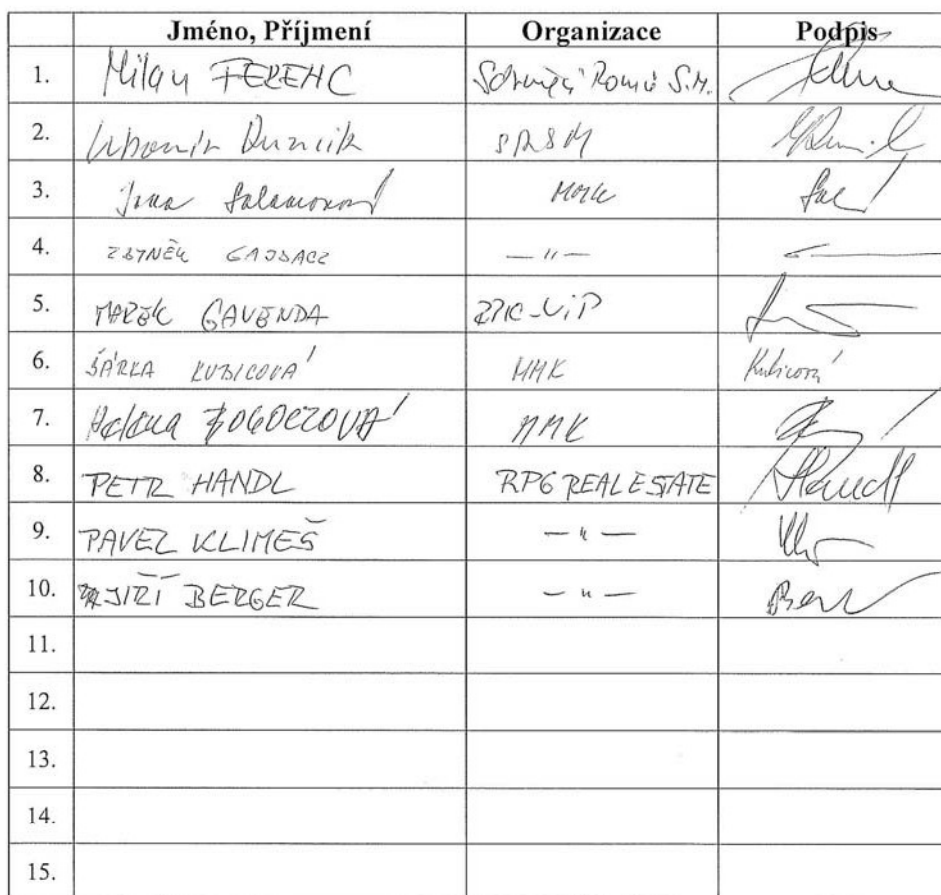 Jméno, Příjmení Organizace Podpis
1. Milan FERENC Sdružení Romů S.M.
2. Lubomír SRSM
3. Jana Salamonová MMK Sal
4. ZBYNĚK GAJDACZ — " —
5. MAREK GAVENDA RPIC-ViP
6. ŠÁRKA KUBICOVÁ MMK Kubicová
7. Helena BOGOCZOVÁ MMK
8. PETR HANDL RPG REAL ESTATE Handl
9. PAVEL KLIMEŠ — " —
10. JIŘÍ BERGER — " — Ber
11.
12.
13.
14.
15.